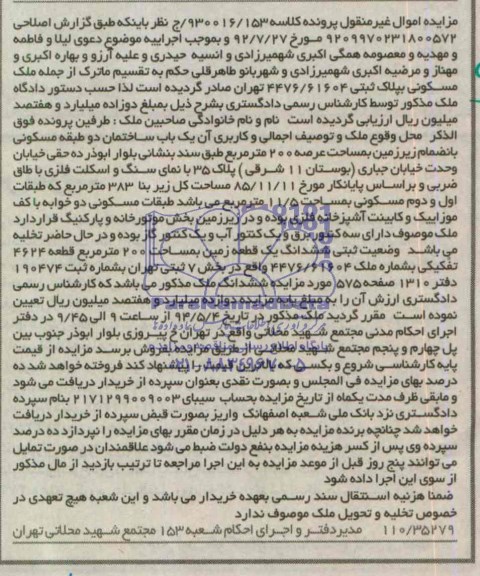 مزایده اموال غیرمنقول پرونده کلاسه ۹۳۰۰۱۶/۱۵۳/ج نظر باینکه طبق گزارش اصلاحی
۹۲۰۹۹۷۰۲۳۱۸۰۰۵۷۲ مورخ ۹۲/۷/۲۷ و بموجب اجراییه موضوع دعوی لیلا و فاطمه
و مهدیه و معصومه همگی اکبری شهمیرزادی و انسیه حیدری و علیه آرزو و بهاره اکبری و
مهناز و مرضیه اکبری شهمیرزادی و شهربانو طاهرقلی حکم به تقسیم ماترک از جمله ملک
مسکونی بپلاک ثبتی ۴۴۷۶/۶۱۶۰۴ تهران صادر گردیده است لذا حسب دستور دادگاه
ملک مذکور توسط کارشناس رسمی دادگستری بشرح ذیل بمبلغ دوزاده میلیارد و هفتصد
میلیون ریال ارزیابی گردیده است نام و نام خانوادگی صاحبین ملک : طرفین پرونده فوق
الذکر محل وقوع ملک و توصیف اجمالی و کاربری آن یک باب ساختمان دو طبقه مسکونی
بانضمام زیرزمین بمساحت عرصه ۲۰۰ مترمربع طبق سند بنشانی بلوار ابوذر ده حقی خیابان
وحدت خیابان جباری (بوستان ۱۱ شرقی ) پلاک ۳۵ با نمای سنگ و اسکلت فلزی با طاق
ضربی و براساس پایانکار مورخ ۸۵/۱۱/۱۱ مساحت کل زیر بنا ۳۸۳ مترمربع که طبقات
اول و دوم مسکونی بمساحت ۱۱۷/۵ مترمربع می باشد طبقات مسکونی دو خوابه با کف
موزاییک و کابینت آشپزخانه فلزی بوده و در زیرزمین بخش موتورخانه و پارکینگ قراردارد
ملک موصوف دارای سه کنتور برق و یک کنتور آب و یک کنتور گاز بوده و در حال حاضر تخلیه
می باشد وضعیت ثبتی ششدانگ یک قطعه زمین بمساحت ۲۰۰ مترمربع قطعه ۴۶۲۴
تفکیکی بشماره ملک ۴۴۷۶/۶۱۶۰۴ واقع در بخش ۷ ثبتی تهران بشماره ثبت ۱۹۰۴۷۴
دفتر ۱۳۱۰ صفحه ۵۷۵ مورد مزایده ششدانگ ملک مذکور می باشد که کارشناس رسمی
دادگستری ارزش آن را به مبلغ پایه مزایده دوازده میلیارد و هفتصد میلیون ریال تعیین
نموده است مقرر گردید ملک مذکور در تاریخ ۹۴/۵/۴ از ساعت ۹ الی ۹/۴۵ در دفتر
اجرای احکام مدنی مجتمع شهید محلاتی واقع در تهران خ پیروزی بلوار ابوذر جنوب بین
پل چهارم و پنجم مجتمع شهید محلاتی از طریق مزایده بفروش برسد مزایده از قیمت
پایه کارشناسی شروع و بکسی که بالاترین قیمت را پیشنهاد کند فروخته خواهد شد ده
درصد بهای مزایده فی المجلس و بصورت نقدی بعنوان سپرده از خریدار دریافت می شود
و مابقی ظرف مدت یکماه از تاریخ مزایده بحساب سیبای ۲۱۷۱۲۹۹۰۰۹۰۰۳ بنام سپرده
دادگستری نزد بانک ملی شعبه اصفهانک واریز بصورت قبض سپرده از خریدار دریافت
خواهد شد چنانچه برنده مزایده به هر دلیل در زمان مقرر بهای مزایده را نپردازد ده درصد
سپرده وی پس از کسر هزینه مزایده بنفع دولت ضبط می شود علاقمندان در صورت تمایل
می توانند پنج روز قبل از موعد مزایده به این اجرا مراجعه تا ترتیب بازدید از مال مذکور
از سوی این اجرا داده شود
ضمنا هزینه استقلال سند رسمی بعهده خریدار می باشد و این شعبه هیچ تعهدی در
خصوص تخلیه و تحویل ملک موصوف ندارد
۱۱۰/۳۵۲۷۹ مدیردفتر و اجرای احکام شعبه ۱۵۳ مجتمع شهید محلاتی تهران